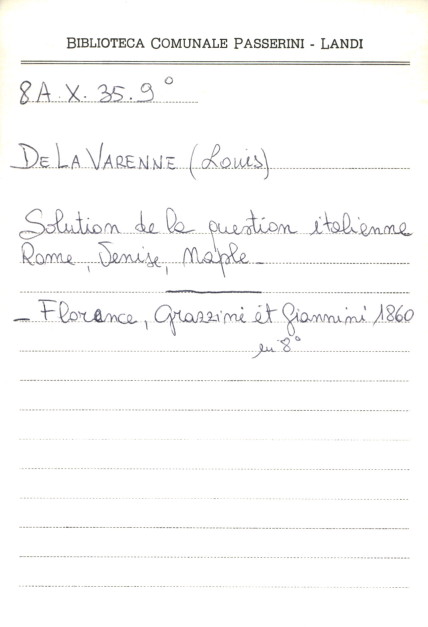 BIBLIOTECA COMUNALE PASSERINI - LANDI
8A. X. 35. 9°
DE LA VARENNE (Louis)
Solution de la question italienne
Rome, Venise, Naple -
- Florence, Grazzini et Giannini 1860
in 8°